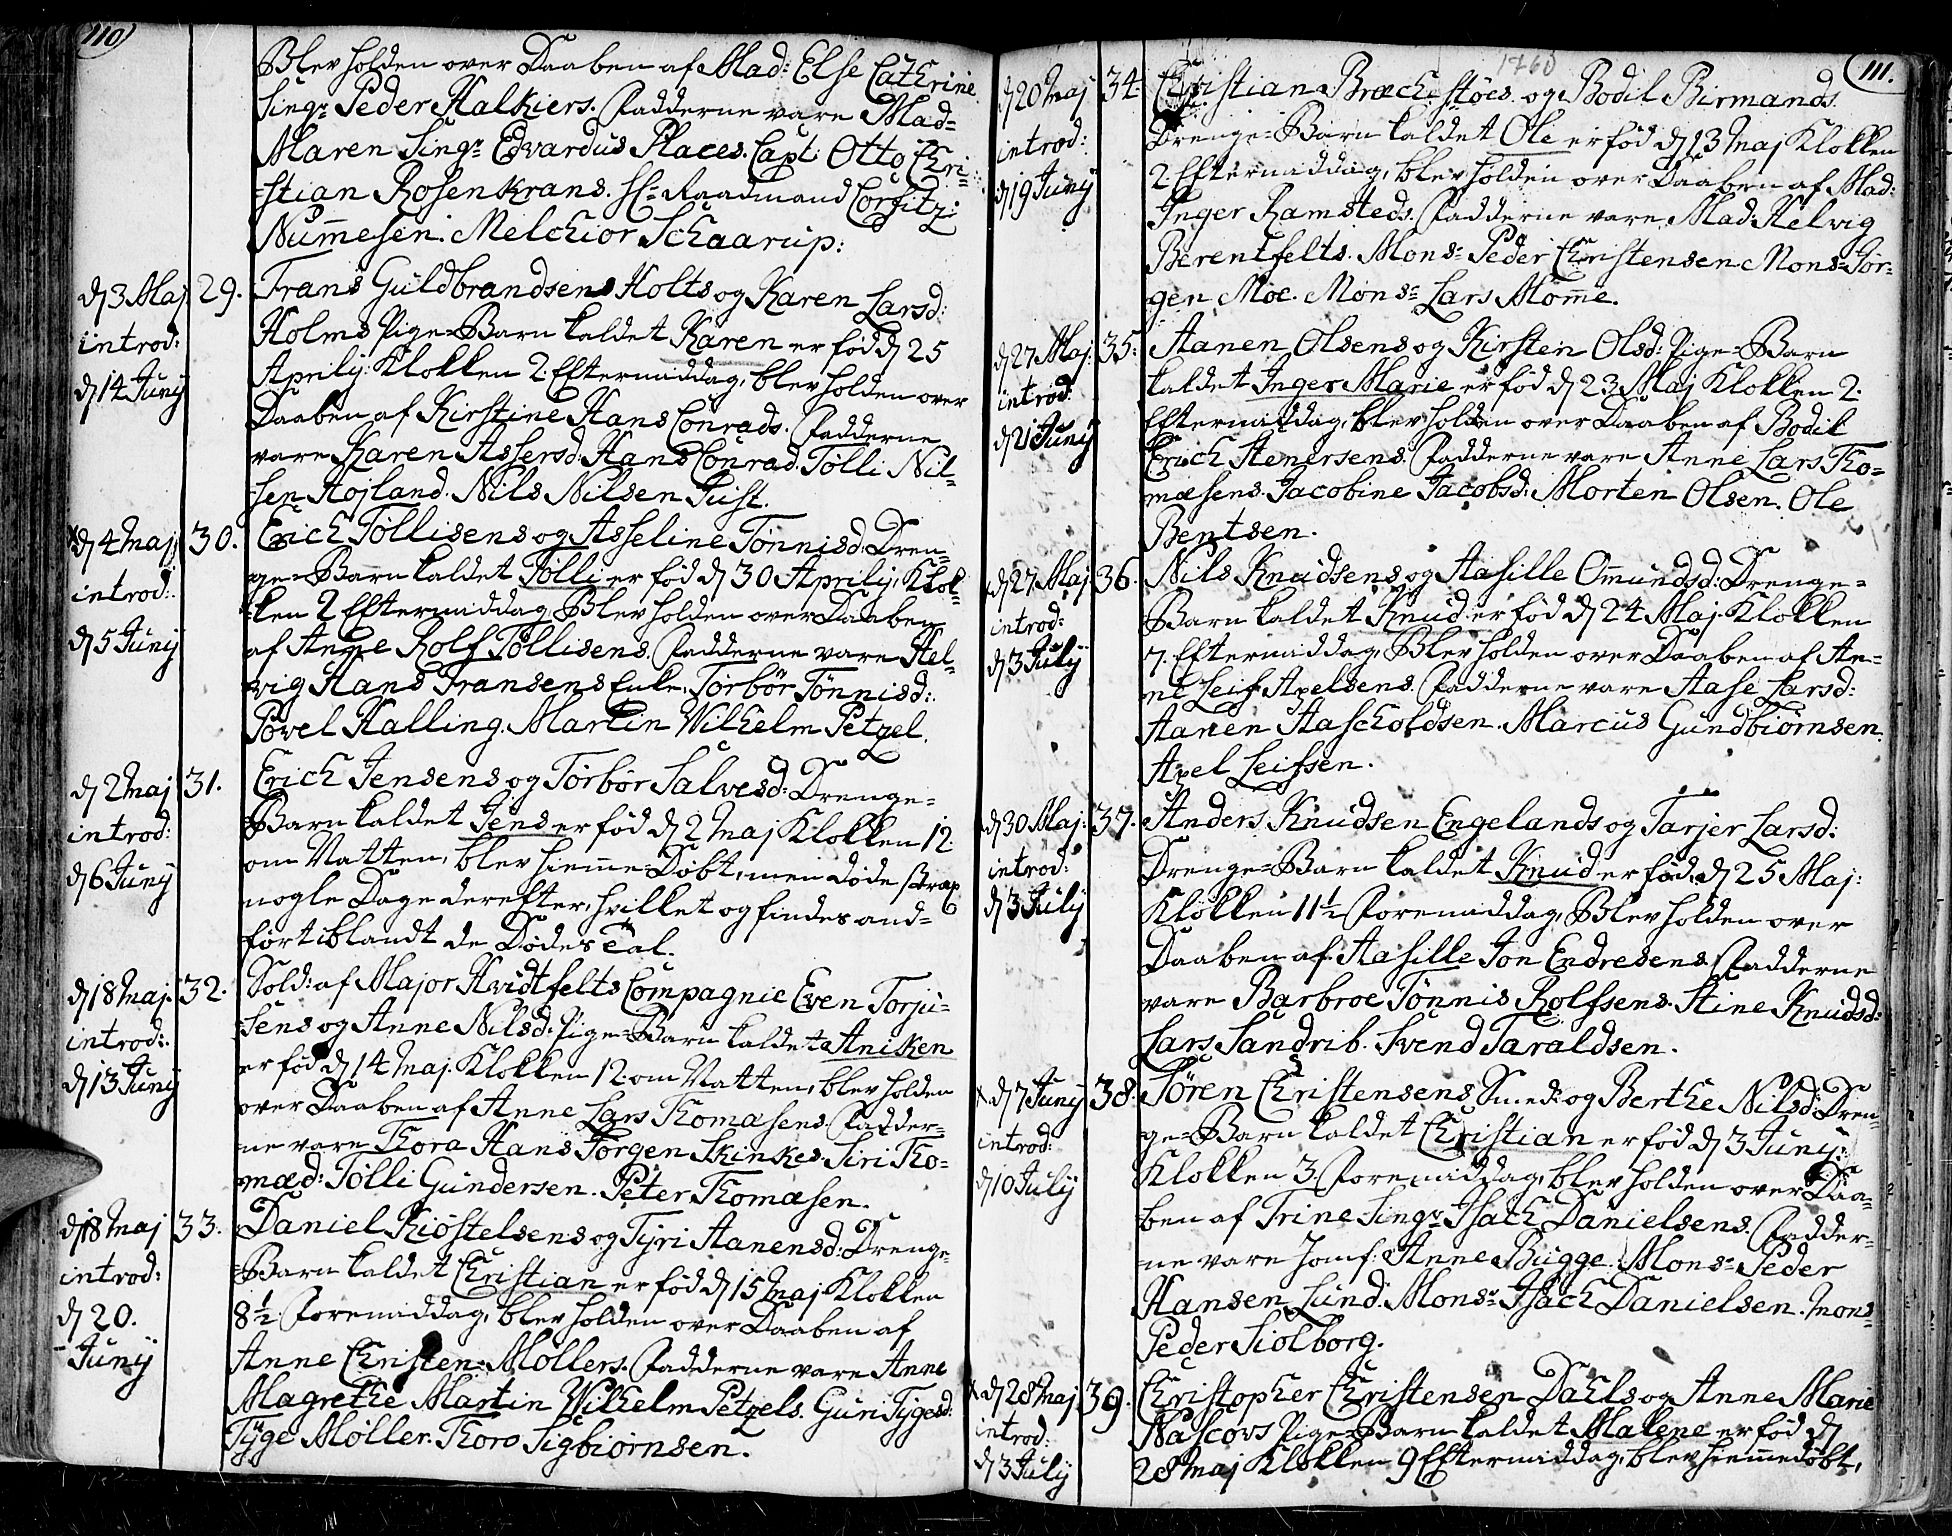 110
Blev holden over Daaben af Mad: Else Cathrine
Sing.r Peder Kalkiers. Fadderne vare Mad=
Maren Sing.r Edvardus Places. Capt: Otto Chri=
=stian Rosenkrans. Hr= Raadmand Corfitz
Nummesen. Melchior Schaarup:
d 3 Maj 29. Frans Guldbrandsens Holts og Karen Larsd:
introd: Holms Pige=Barn kaldet Karen er fød d 25
d 14 Junij Aprilij Klokken 2 Eftermiddag, blev holden over
Daaben af Kirstine Hans Conrads. Fadderne
vare Karen Assersd: Hans Conrad. Tølli Nil=
sen Højland. Nils Nilsen Tuist.
d 4 Maj 30. Erich Tøllisens og Asseline Tønnisd: Dren=
introd: ge=Barn kaldet Tølli er fød d 30 Aprilij, Klok=
=ken 2 Eftermiddag Blev holden over Daaben
d 5 Junij af Anne Rolf Tøllisens. Fadderne vare Hel=
vig Hans Fransens Enke, Torbør Tønnisd:
Povel Halling. Martin Wilhelm Petzel.
d 2 Maj 31. Erich Jensens og Torbør Salvesd: Drenge=
introd: Barn kaldet Jens er fød d 2 Maj Klokken 12
d 6 Junij om Natten, blev hiemme=Døbt, men døde strax
nogle Dage derefter, hvilket og findes and=
ført iblandt de Dødes Tal.
d 18 Maj 32. Sold: af Major Hvidtfelts Compagnie Even Torju=
introd: sens og Anne Nilsd: Pige=Barn kaldet Aniken
d 13 Junij er fød d 14 Maj. Klokken 12 om Natten, blev holden
over Daaben af Anne Lars Thomæsens. Fadder=
=ne vare Thora Hans Jørgen Skinkes. Siri Tho=
mæd: Tølli Gundersen. Peter Thomæsen.
d 18 Maj 33. Daniel Kiøstelsens og Tyri Aanensd: Drenge=
introd: Barn kaldet Christian er fød d 15 Maj Klokken
d 20. 8½ Foremiddag, blev holden over Daaben af
Junij Anne Christen=Møllers. Fadderne vare Anne
Magrethe Martin Wilhelm Petzels. Guri Tygesd:
Tÿge Møller. Thoro Sigbiørnsen.
1760
111.
d 20 Maj 34. Christian Bræchstøes og Bodil Birmands
introd: Drenge=Barn kaldet Ole er fød d 13 Maj Klokken
d 19 Junij 2 Eftermiddag, blev holden over Daaben af Mad:
Inger Ramsteds. Fadderne vare Mad: Helvig
Berentfelts. Mons= Peder Christensen. Mons= Jør=
gen Moe. Mons= Lars Momme.
d 27 Maj. 35. Aanen Olsens og Kirsten Olsd: Pige=Barn
introd: kaldet Inger Marie er fød d 23 Maj Klokken 2.
d 21 Junij Eftermiddag, blev holden over Daaben af Bodil
Erich Aenersens. Fadderne vare Anne Lars Tho=
mæsens. Jacobine Jacobsd: Morten Olsen. Ole
Bentsen.
d 27 Maj 36. Nils Knudsens og Aasille Omundsd: Drenge=
introd: Barn kaldet Knud er fød d 24 Maj. Klokken
d 3 Julij 7. Eftermiddag, Blev holden over Daaben af An=
ne Leif Axelsens. Fadderne vare Aase Larsd:
Aanen Aascholdsen. Marcus Gundbiørnsen.
Axel Leifsen.
d 30 Maj: 37. Anders Knudsen Engelands og Tarjer Larsd:
introd: Drenge=Barn kaldet Knud er fød d 25 Maj:
d 3 Julij Klokken 11½ Foremiddag, Blev holden over
Daaben af Aasille Jon Endresens. Fadderne
vare Barbroe Tønnis Rolfsens. Stine Knudsd:
Lars Sandrib. Svend Taraldsen.
d 7 Junij 38. Søren Christensens Smed: og Berthe Nilsd: Dren=
introd: ge=Barn kaldet Christian er fød d 3 Junij:
d 10 Julij Klokken 3. Foremiddag, blev holden over Daa=
ben af Trine Sing.r Isach Danielsens. Fadder=
ne vare Jomf: Anne Bugge. Mons= Peder
Hansen Lund. Mons.r Isach Danielsen. Mons=
Peder Siolborg.
d 28 Maj 39. Christopher Christensen Dahls og Anne Marie
introd: Nascovs Pige=Barn kaldet Malene er fød d
d 3 Julij 28 Maj Klokken 9 Eftermiddag, blev hiemmedøbt,